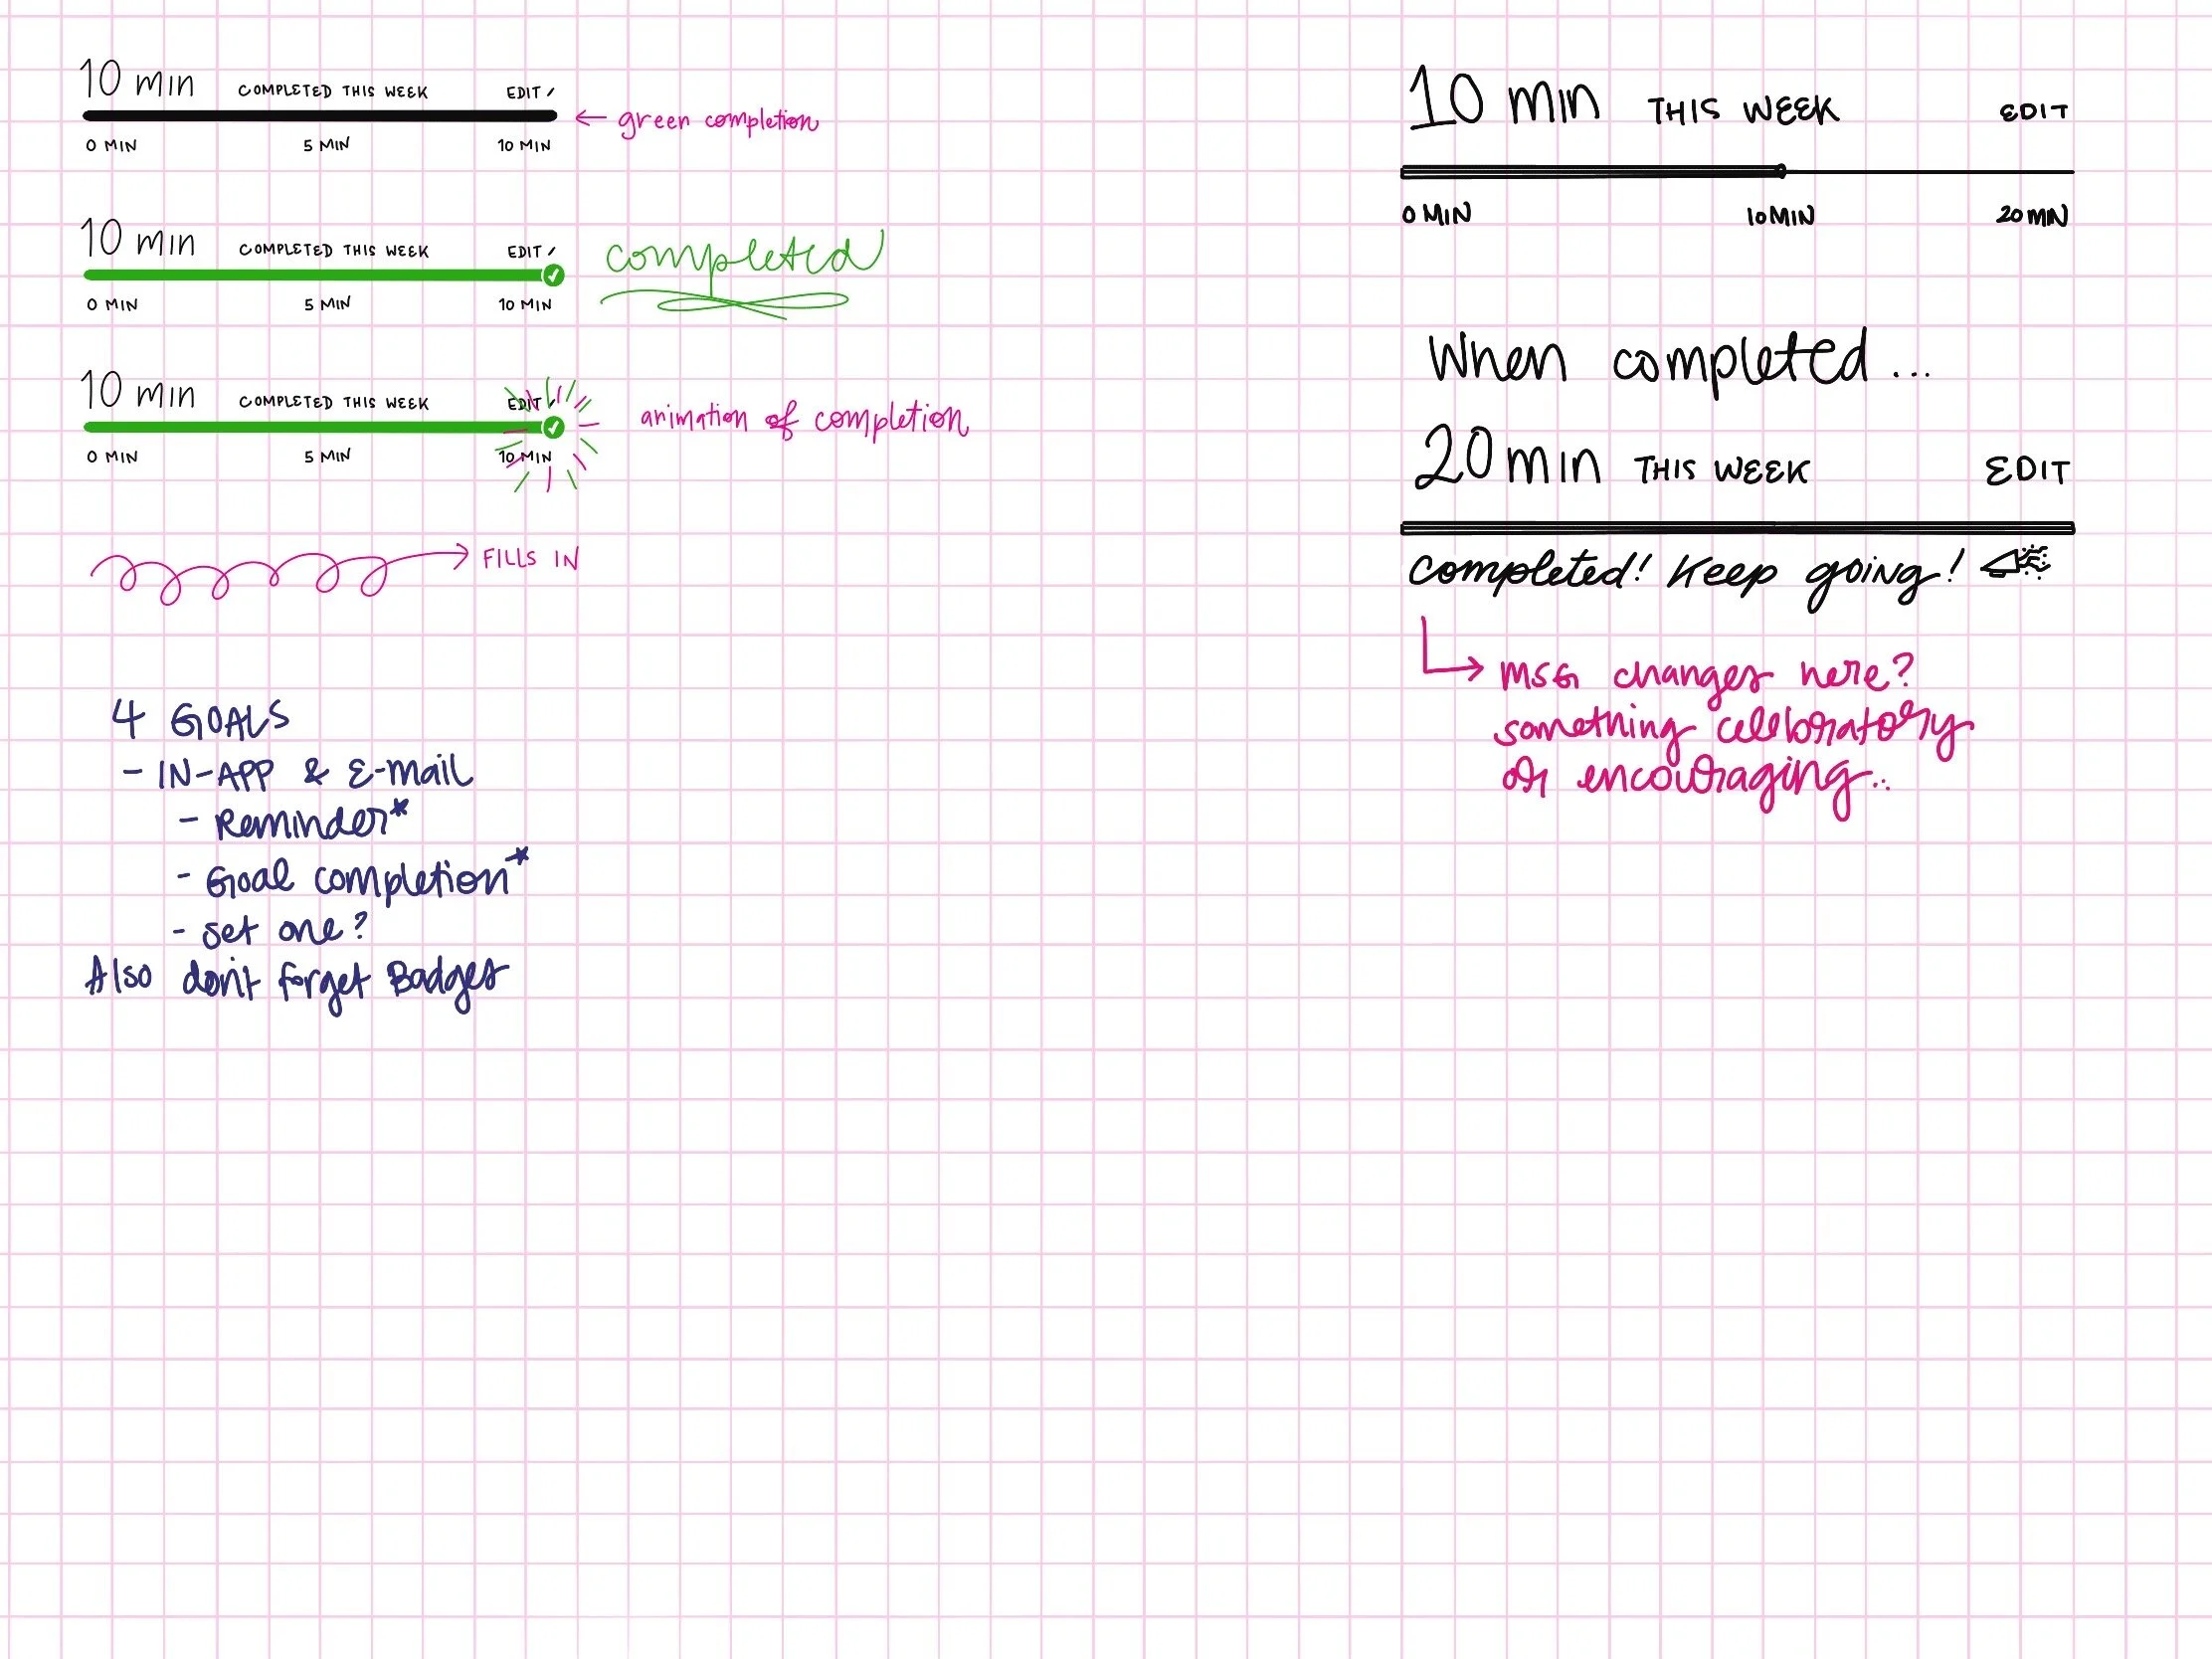 10 min COMPLETED THIS WEEK EDIT
← green completion
0 MIN 5 MIN 10 MIN
10 min COMPLETED THIS WEEK EDIT
completed
0 MIN 5 MIN 10 MIN
10 min COMPLETED THIS WEEK EDIT
animation of completion
0 MIN 5 MIN 10 MIN
FILLS IN
4 GOALS
- IN-APP & E-mail
- Reminder*
- Goal completion*
- set one?
Also don't forget Badges
10 min THIS WEEK EDIT
0 MIN 10 MIN 20 MIN
When completed...
20 min THIS WEEK EDIT
completed! Keep going!
MSG changes here?
something celebratory
or encouraging...